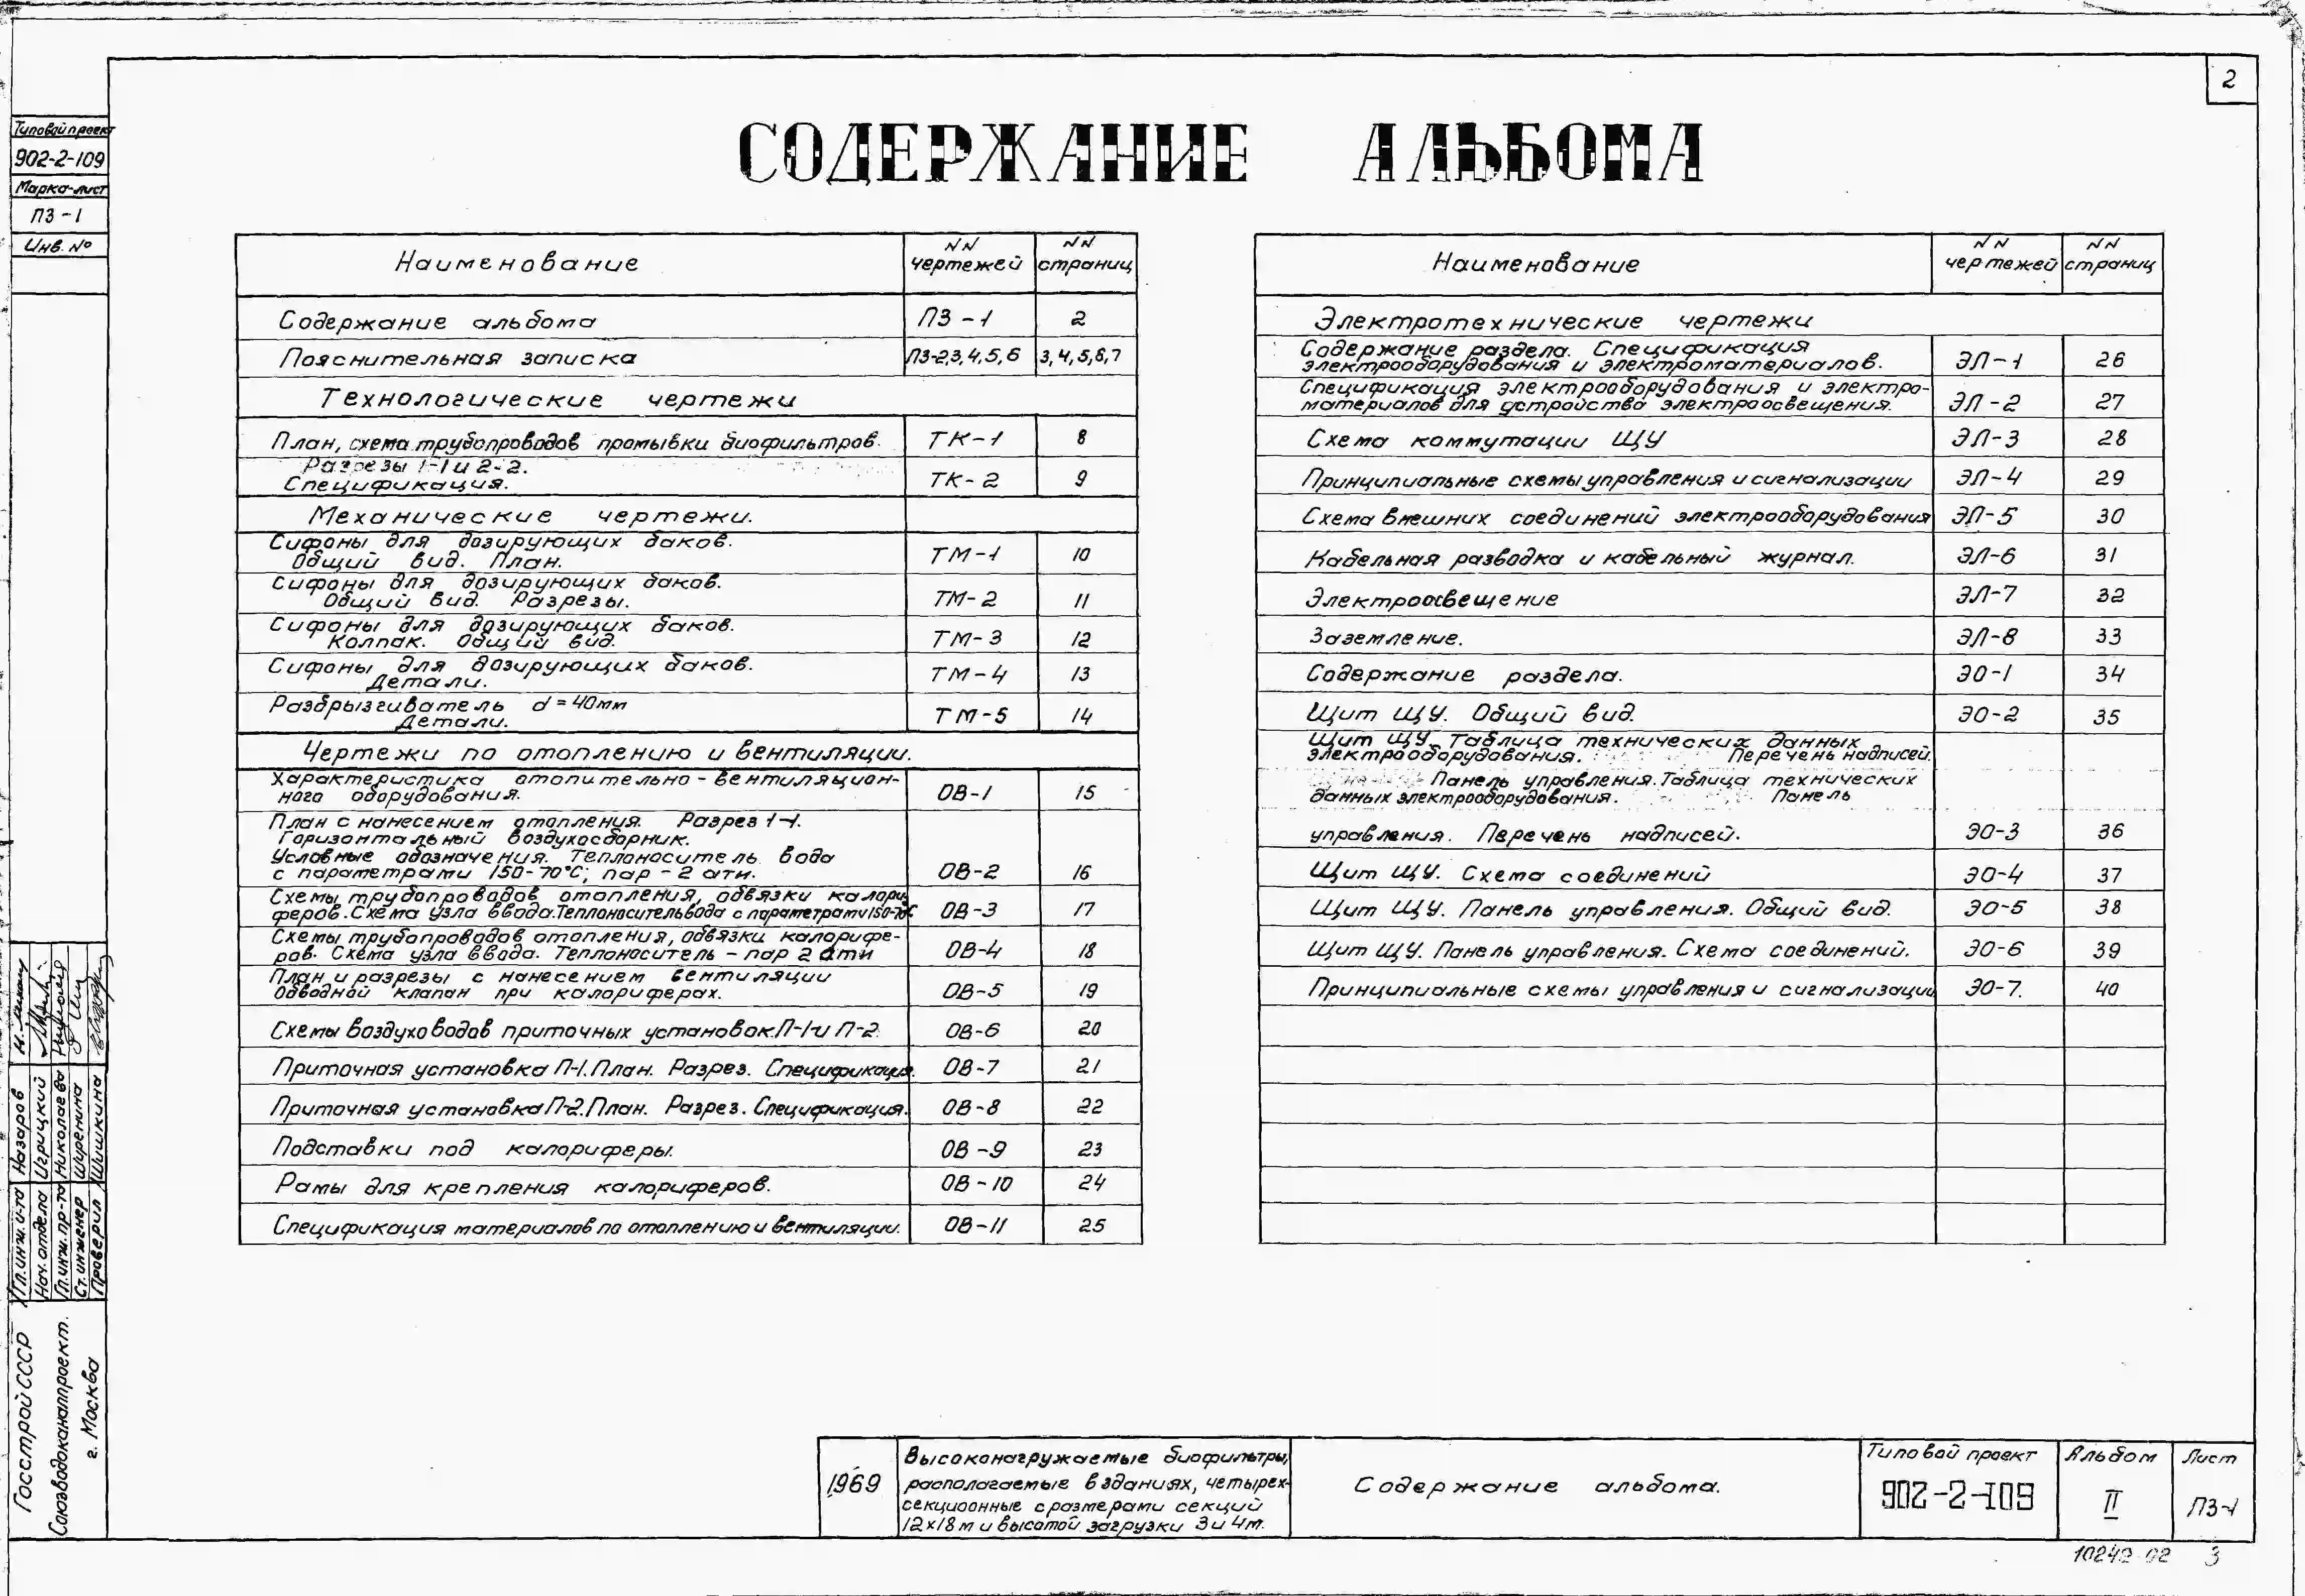 2
Типовой проект
902-2-109
Марка-лист
ПЗ-1
Инв. №
СОДЕРЖАНИЕ АЛЬБОМА
Наименование
NN чертежей
NN страниц
Содержание альбома ПЗ-1 2
Пояснительная записка ПЗ-2,3,4,5,6 3,4,5,6,7
Технологические чертежи
План, схема трубопроводов промывки биофильтров. ТК-1 8
Разрезы 1-1 и 2-2.
Спецификация. ТК-2 9
Механические чертежи.
Сифоны для дозирующих баков.
Общий вид. План. ТМ-1 10
Сифоны для дозирующих баков.
Общий вид. Разрезы. ТМ-2 11
Сифоны для дозирующих баков.
Колпак. Общий вид. ТМ-3 12
Сифоны для дозирующих баков.
Детали. ТМ-4 13
Разбрызгиватель d=40мм
Детали. ТМ-5 14
Чертежи по отоплению и вентиляции.
Характеристика отопительно-вентиляцион-
ного оборудования. ОВ-1 15
План с нанесением отопления. Разрез 1-1.
Горизонтальный воздухосборник.
Условные обозначения. Теплоноситель вода
с параметрами 150-70°С; пар-2 ати. ОВ-2 16
Схемы трубопроводов отопления, обвязки калори-
феров. Схема узла ввода. Теплоноситель вода с параметрами 150-70°С ОВ-3 17
Схемы трубопроводов отопления, обвязки калорифе-
ров. Схема узла ввода. Теплоноситель - пар 2 ати ОВ-4 18
План и разрезы с нанесением вентиляции
Обводной клапан при калориферах. ОВ-5 19
Схемы воздуховодов приточных установок П-1 и П-2. ОВ-6 20
Приточная установка П-1. План. Разрез. Спецификация. ОВ-7 21
Приточная установка П-2. План. Разрез. Спецификация. ОВ-8 22
Подставки под калориферы. ОВ-9 23
Рамы для крепления калориферов. ОВ-10 24
Спецификация материалов по отоплению и вентиляции. ОВ-11 25
Наименование
NN чертежей
NN страниц
Электротехнические чертежи
Содержание раздела. Спецификация
электрооборудования и электроматериалов. ЭЛ-1 26
Спецификация электрооборудования и электро-
материалов для устройства электроосвещения. ЭЛ-2 27
Схема коммутации ЩУ ЭЛ-3 28
Принципиальные схемы управления и сигнализации ЭЛ-4 29
Схема внешних соединений электрооборудования ЭЛ-5 30
Кабельная разводка и кабельный журнал. ЭЛ-6 31
Электроосвещение ЭЛ-7 32
Заземление. ЭЛ-8 33
Содержание раздела. ЭО-1 34
Щит ЩУ. Общий вид. ЭО-2 35
Щит ЩУ. Таблица технических данных
электрооборудования. Перечень надписей.
Панель управления. Таблица технических
данных электрооборудования. Панель
управления. Перечень надписей. ЭО-3 36
Щит ЩУ. Схема соединений ЭО-4 37
Щит ЩУ. Панель управления. Общий вид. ЭО-5 38
Щит ЩУ. Панель управления. Схема соединений. ЭО-6 39
Принципиальные схемы управления и сигнализации ЭО-7. 40
Гл. инж. и-та Назаров
Нач. отдела Игрицкий
Гл. инж. пр-та Николаева
Ст. инженер Шуренина
Проверил Шишкина
Госстрой СССР
Союзводоканалпроект.
г. Москва
1969
Высоконагружаемые биофильтры,
располагаемые в зданиях, четырех-
секционные с размерами секций
12х18 м и высотой загрузки 3 и 4 м.
Содержание альбома.
Типовой проект
902-2-109
Альбом
II
Лист
ПЗ-1
10242-02 3